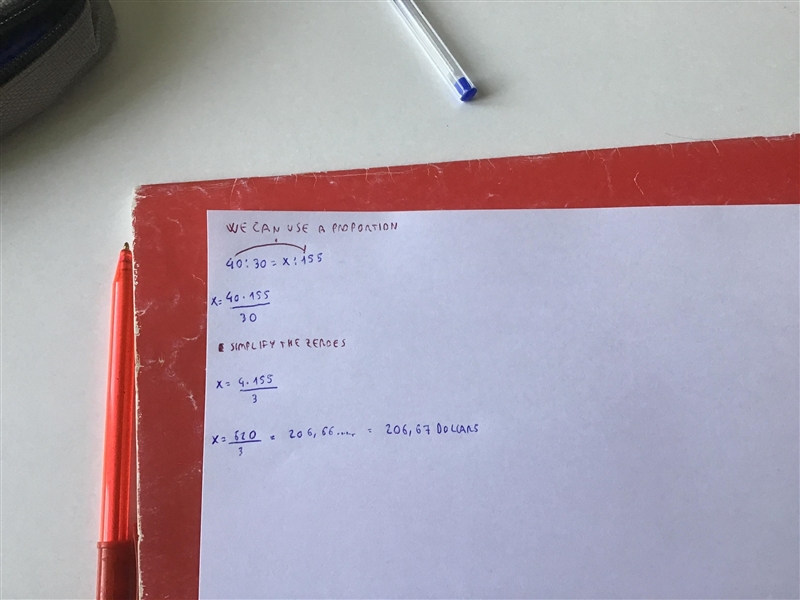 WE CAN USE A PROPORTION
40:30 = x:155
x = 40·155
30
SIMPLIFY THE ZEROES
x = 4·155
3
x = 620 = 206,66.... = 206,67 DOLLARS
3